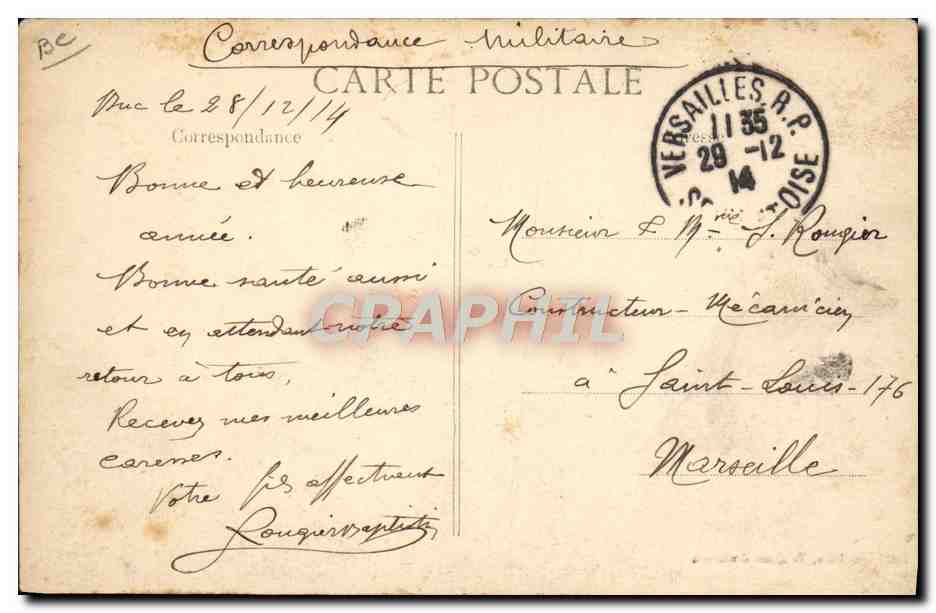 BC
Correspondance Militaire
CARTE POSTALE
Buc le 28/12/14
Correspondance
Bonne et heureuse
année.
Bonne santé aussi
et en attendant notre
retour à tous,
Recevez mes meilleures
caresses.
Votre fils affectueux
Rougier Baptistin
VERSAILLES R.P.
11 35
29 -12
14
OISE
Monsieur & Mme S. Rougier
Constructeur-Mécanicien
à Saint-Louis-176
Marseille
CPAPHIL